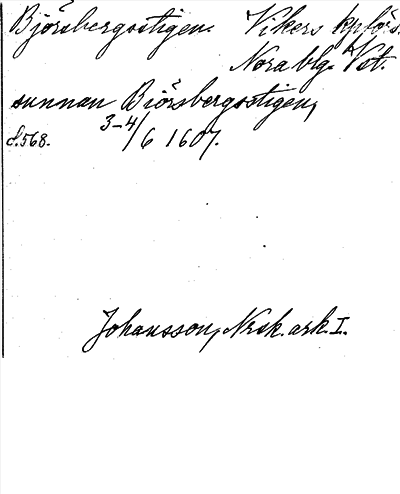 Björsbergsstigen. Vikers kpförs.
Nora blg. Vst.
sunnan Biörsbergsstigen,
d. 568. 3-4/6 1607.
Johansson, Nrsk. ark. I.